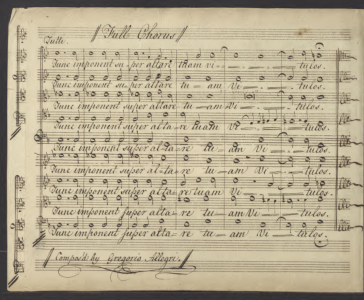 Full Chorus
Tutti
Tunc imponent su per altare tuam vi — — — tulos.
Tunc imponent super altare tu — am Vi — — — tulos.
Tunc imponent super altare tu — am Vi — — — tulos.
Tunc imponent super alta — re tuam Vi — — — tulos.
Tunc imponent super alta — re tu — am Vi — — — tulos.
Tunc imponent super al — ta — re tu — am Vi — — — tulos.
Tunc imponent super alta — re tuam Vi — — — tulos.
Tunc imponent super alta — re tu — am Vi — — — tulos.
Tunc imponent super alta — re tu — am vi — — — tulos.
Compos'd by Gregorio Allegri.